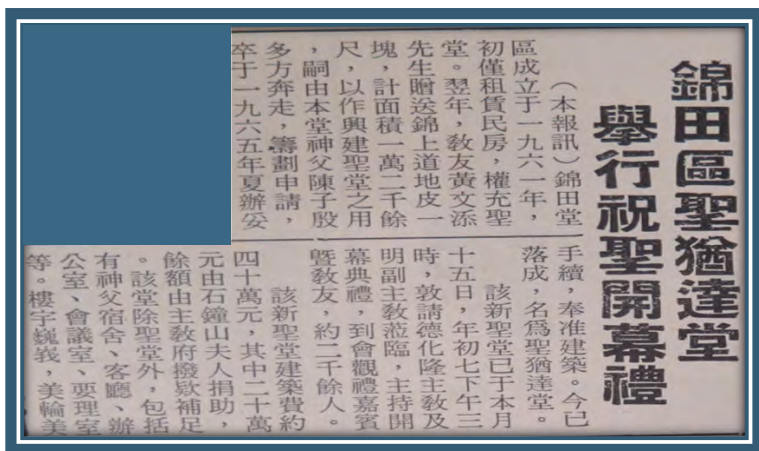 錦田區聖猶達堂
舉行祝聖開幕禮
(本報訊)錦田堂
區成立于一九六一年,
初僅租賃民房,權充聖
堂。翌年,教友黃文添
先生贈送錦上道地皮一
塊,計面積一萬二千餘
尺,以作興建聖堂之用
,嗣由本堂神父陳子殷
多方奔走,籌劃申請,
卒于一九六五年夏辦妥
手續,奉准建築。今已
落成,名爲聖猶達堂。
該新聖堂已于本月
十五日,年初七下午三
時,敦請德化隆主教及
明副主教蒞臨,主持開
幕典禮,到會觀禮嘉賓
暨教友,約二千餘人。
該新聖堂建築費約
四十萬元,其中二十萬
元由石鐘山夫人捐助,
餘額由主教府撥欵補足
。該堂除聖堂外,包括
有神父宿舍、客廳、辦
公室、會議室、要理室
等。樓宇巍峩,美輪美